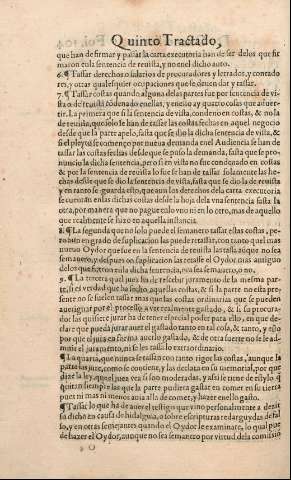 Quinto Tractado,
que han de firmar y passar la carta executoria han de ser delos que fir
maron en la sentencia de reuista, y no en el dicho auto.
6. ¶ Tassar derechos o salarios de procuradores y letrados, y contado
res, y otras qualesquier ocupaciones que se deuen dar y tassar.
7. ¶ Tassar costas quando alguna de las partes fue por sentencia de vi
sta o de reuista cõdenado en ellas, y en esto ay quatro cosas que aduer
tir. La primera que si la sentencia de vista, condeno en costas, & no la
de reuista, que solo le han de tassar las costas fechas en aquel negocio
desde que la parte apelo, fasta que se dio la dicha sentencia de vista, &
si el pleyto se començo por nueua demanda en el Audiencia se han de
tassar las costas fechas desde que se puso la demanda, fasta que se pro
nuncio la dicha sentencia, pero si en vista no fue condenado en costas
& por la sentencia de reuista lo fue se han de tassar solamente las he
chas desde que se dio la sentencia de vista, fasta que se dio la de reuista
y en tanto se guarda esto, que aun los derechos del carta executoria
se cuentan en las dichas costas desde la hoja de la vna sentencia fasta la
otra, por manera que no pague en lo vno ni en lo otro, mas de aquello
que realmente se hizo en aquella instancia.
8. ¶ La segunda que no solo puede el semanero tassar estas costas, pe
ro aun en grado de suplicacion las puede retassar, con tanto que el mas
nueuo Oydor que fue en la sentencia de reuista las tassa aũque no sea
semanero, y despues en suplicacion las retasse el Oydor mas antiguo
delos que fueron en la dicha sentencia, ora sea semanero, o no.
9. ¶ La tercera que el juez ha de rescebir juramento de la mesma par
te, si es verdad que ha fecho aquellas costas, & si la parte no esta pre
sente no se suelen tassar mas que las costas ordinarias que se pueden
aueriguar por el processo auer realmente gastado, & si su procura-
dor las quisiere jurar ha de tener especial poder para ello, en que de-
clare que pueda jurar auer el gastado tanto en tal cosa, & tanto, y esto
por que el jura en forma auerlo gastado, & de otra suerte no se le ad-
mite el juramento, ni se les tassa lo extraordinario.
¶ La quarta, que nunca se tassan con tanto rigor las costas, aunque la
parte las jure, como se contiene, y las declara en su memorial, por que
dize la ley, que el juez vea si son moderadas, y assi se tiene de estylo
quitar siempre las que la parte pudiera gastar en comer en su tierra
pues ni mas ni menos auia alla de comer, y hazer en ello gasto.
¶ Tassar lo que ha de auer el testigo que vino personalmente a dezir
su dicho en causa de hidalguia, o sobre escripturas redarguydas de fal
so, y en otras semejantes quando el Oydor le examinare, lo qual pue
de hazer el Oydor, aunque no sea semanero por virtud de la comissiõ